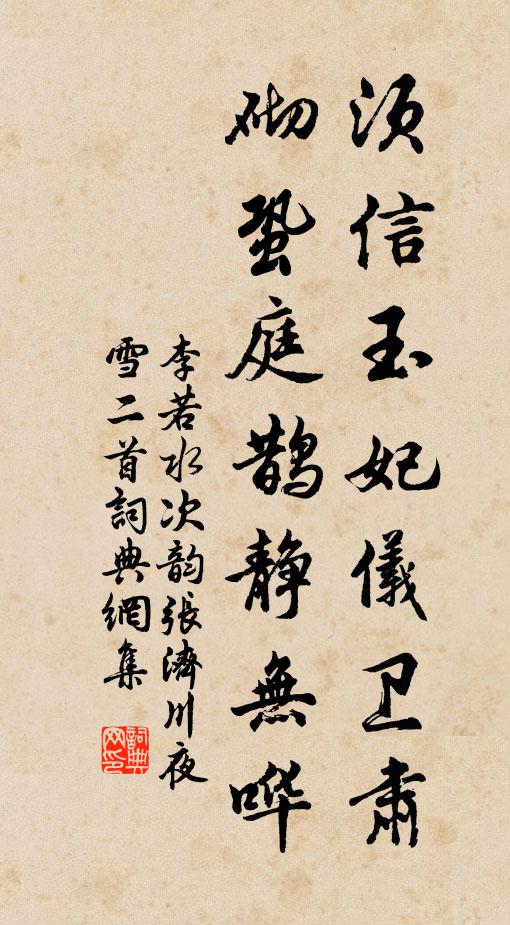 须信玉妃儀卫肃
砌蛩庭鹊静無哗
李若水次韵張濟川夜
雪二首詞典網集
詞典
网印